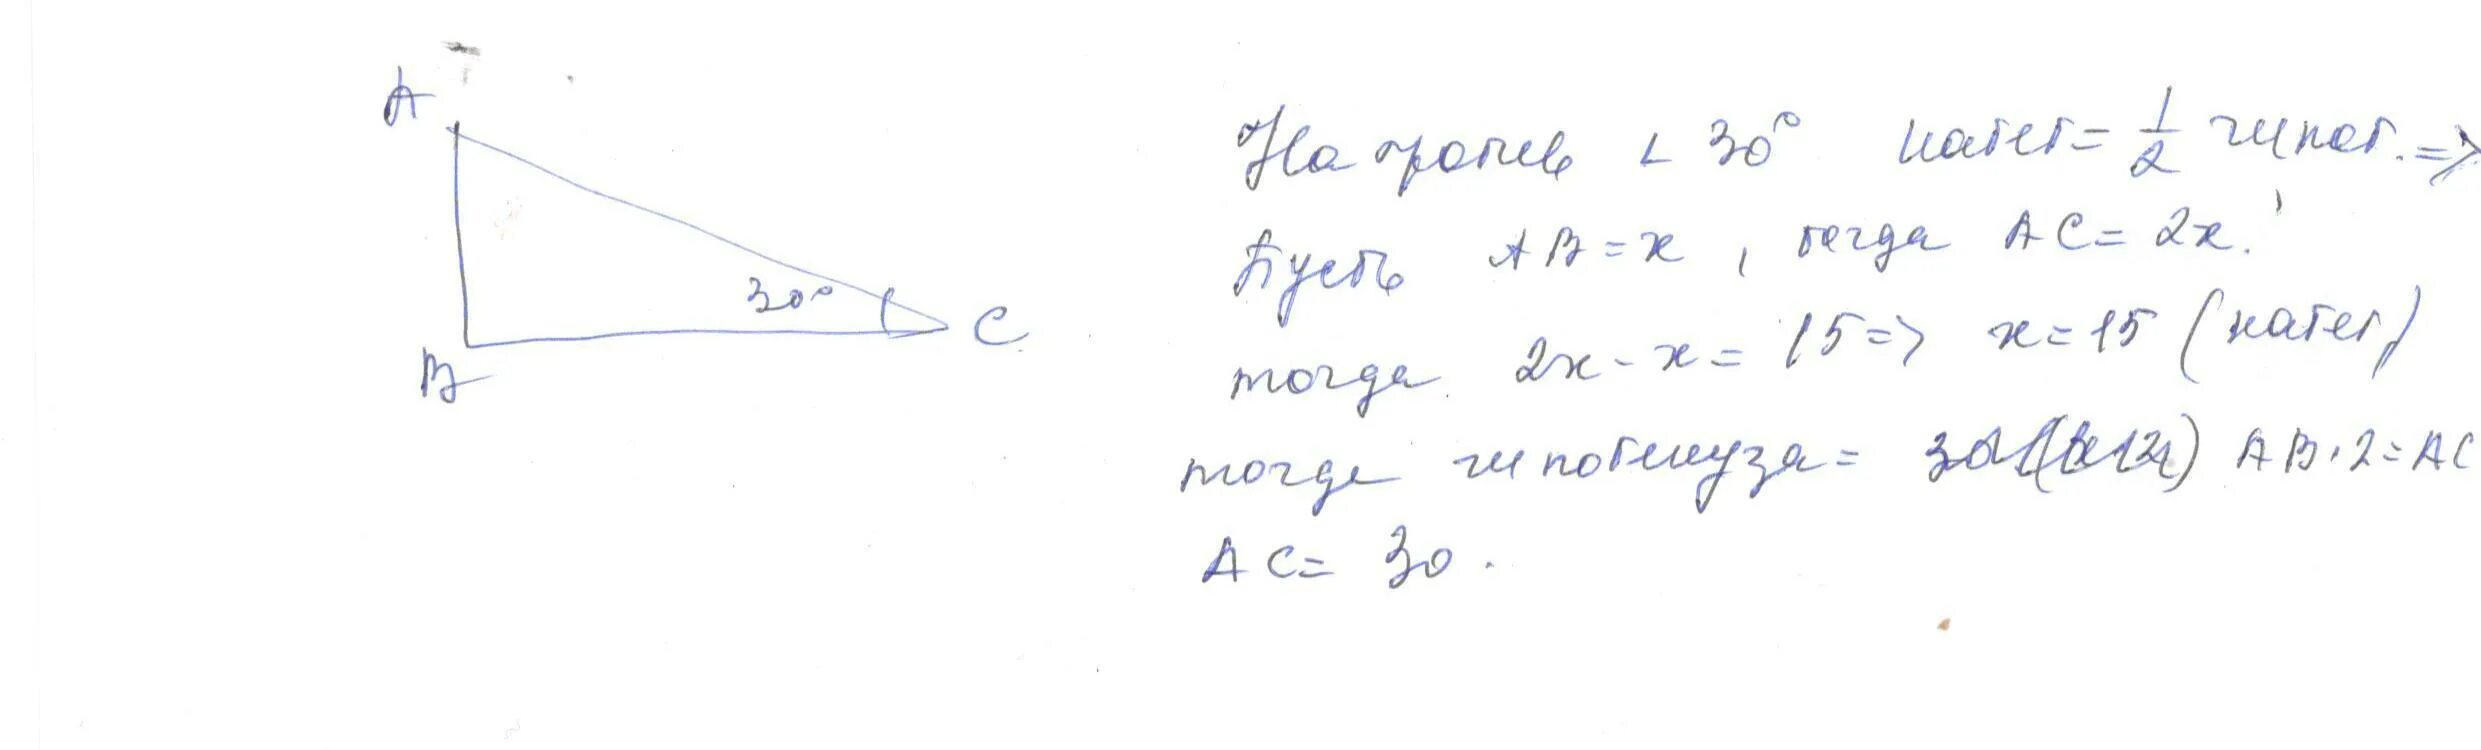 A
B
C
30°
На против ∠ 30° катет = 1/2 гипот. =>
Пусть AB = x, тогда AC = 2x.
тогда 2x - x = 15 => x = 15 (катет)
тогда гипотенуза = AB · 2 = AC
AC = 30.